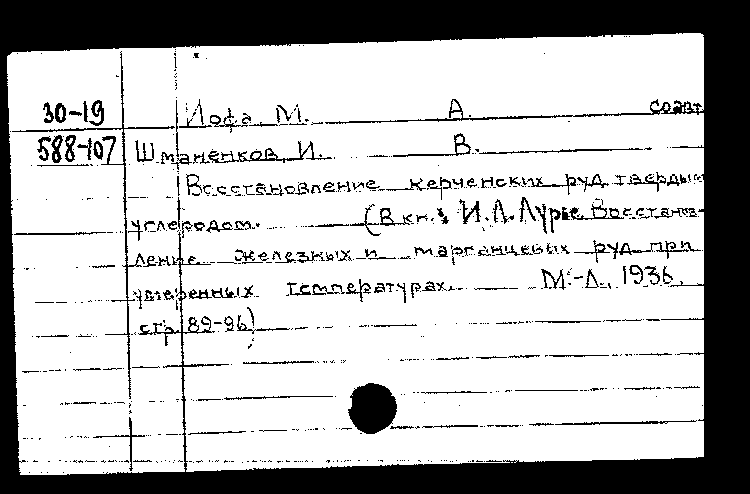 30-19 Иофа, М. А. соавт.
588-107 Шманенков, И. В.
Восстановление керченских руд твердым
углеродом. (В кн.: И.Л. Лурье. Восстанов-
ление железных и марганцевых руд при
умеренных температурах. М.-Л., 1936.
стр. 89-96)